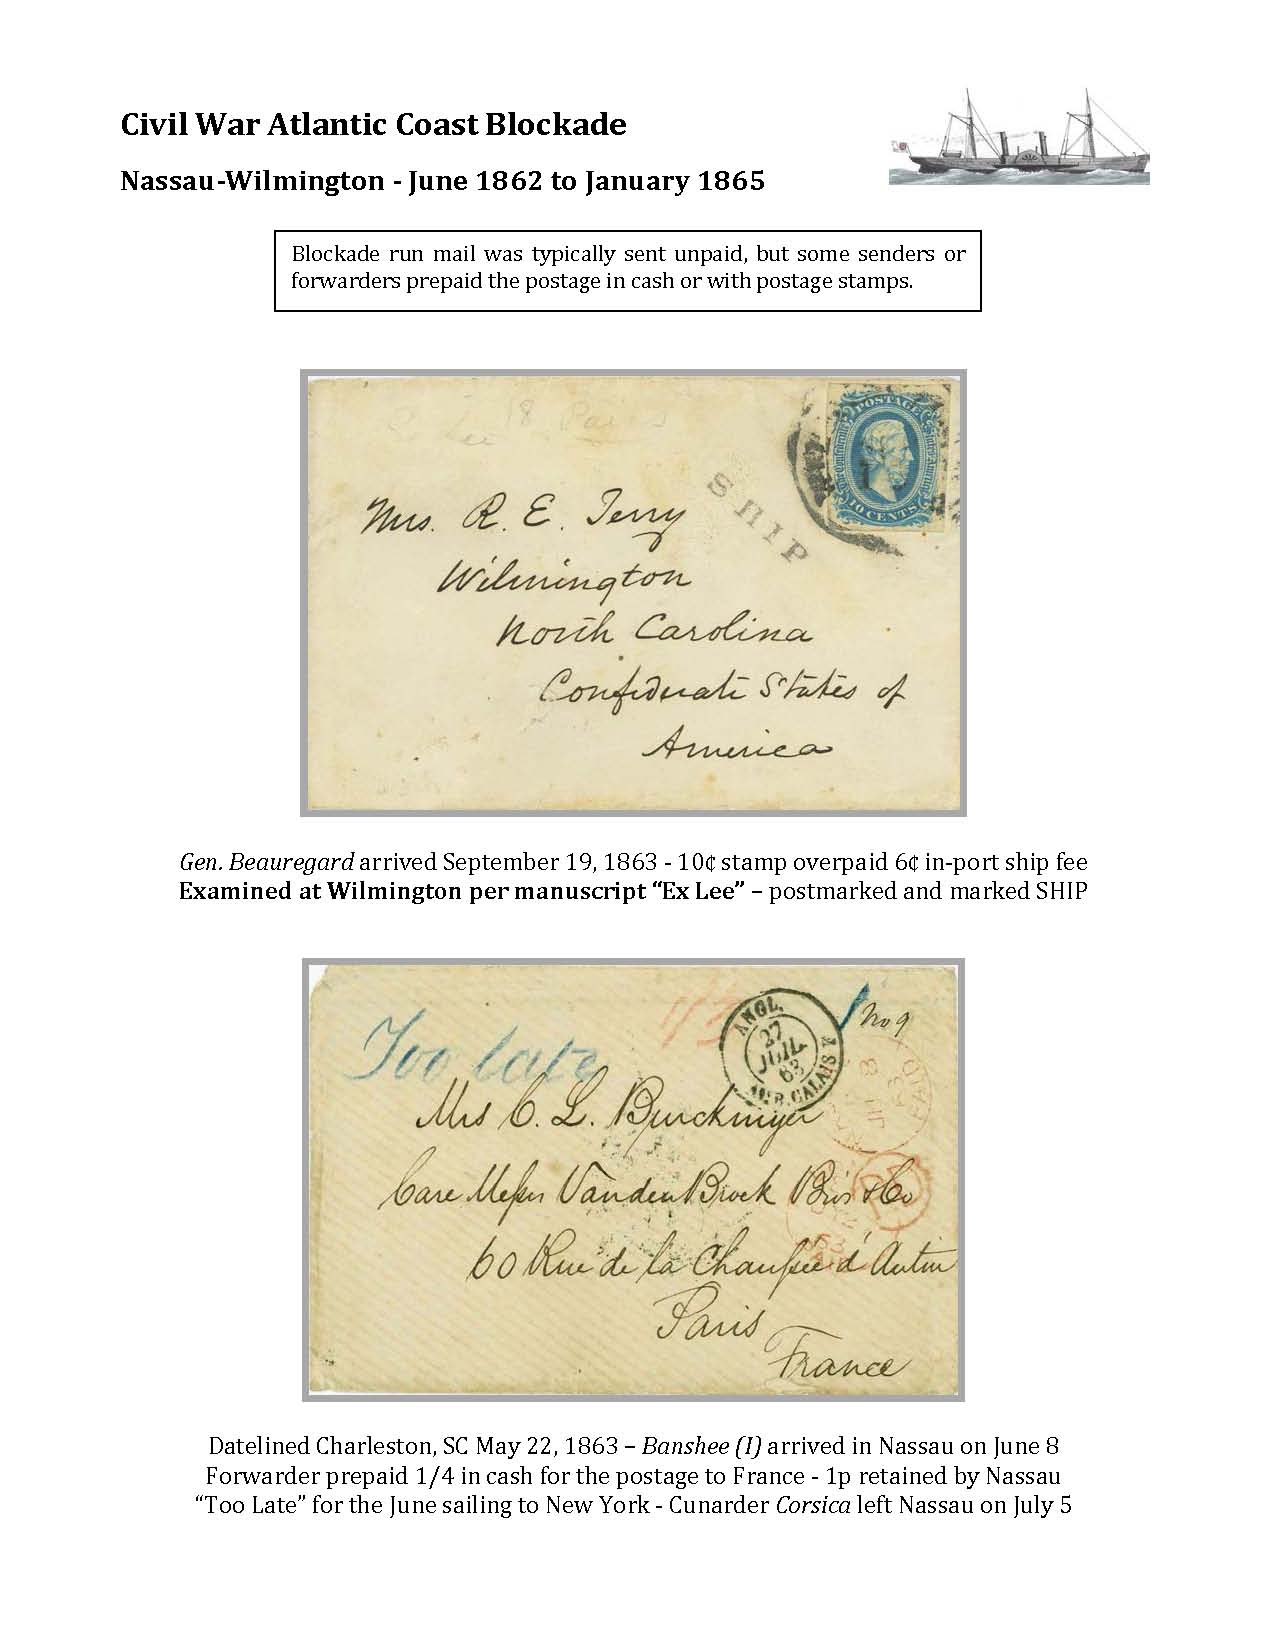 Civil War Atlantic Coast Blockade
Nassau-Wilmington - June 1862 to January 1865
Blockade run mail was typically sent unpaid, but some senders or
forwarders prepaid the postage in cash or with postage stamps.
POSTAGE
10 CENTS
SHIP
Mrs. R. E. Terry
Wilmington
North Carolina
Confederate States of
America
Gen. Beauregard arrived September 19, 1863 - 10¢ stamp overpaid 6¢ in-port ship fee
Examined at Wilmington per manuscript “Ex Lee” – postmarked and marked SHIP
Too late
ANGL.
27
JUIL.
63
AMB. CALAIS
No 9
Mrs C. L. Burckmyer
Care Messrs VandenBroek Bros & Co
60 Rue de la Chaussée d'Antin
Paris
France
PD
Datelined Charleston, SC May 22, 1863 – Banshee (I) arrived in Nassau on June 8
Forwarder prepaid 1/4 in cash for the postage to France - 1p retained by Nassau
“Too Late” for the June sailing to New York - Cunarder Corsica left Nassau on July 5